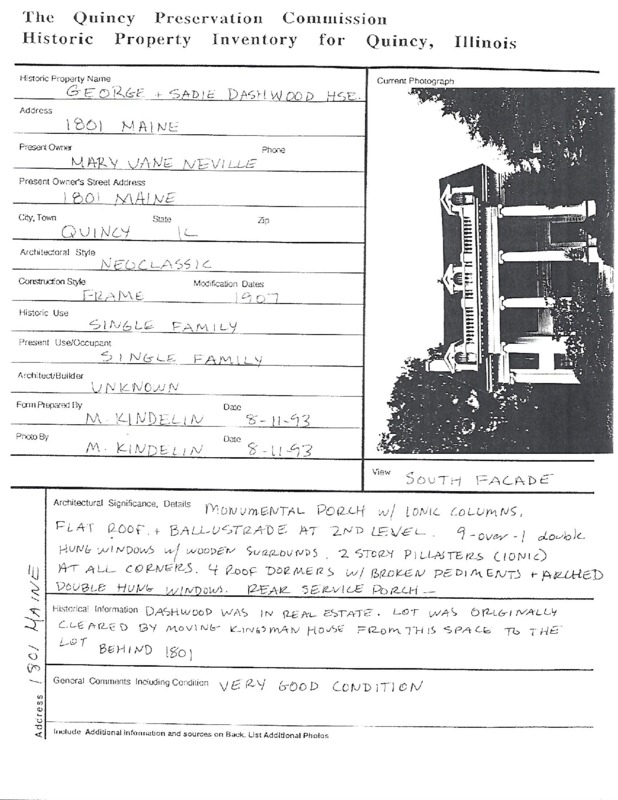 The Quincy Preservation Commission
Historic Property Inventory for Quincy, Illinois
Historic Property Name
GEORGE + SADIE DASHWOOD HSE.
Address
1801 MAINE
Present Owner Phone
MARY JANE NEVILLE
Present Owner's Street Address
1801 MAINE
City, Town State Zip
QUINCY IL
Architectoral Style
NEOCLASSIC
Construction Style Modification Dates
FRAME 1907
Historic Use
SINGLE FAMILY
Present Use/Occupant
SINGLE FAMILY
Architect/Builder
UNKNOWN
Form Prepared By Date
M. KINDELIN 8-11-93
Photo By Date
M. KINDELIN 8-11-93
Current Photograph
View SOUTH FACADE
Architectural Significance, Details MONUMENTAL PORCH W/ IONIC COLUMNS,
FLAT ROOF + BALLUSTRADE AT 2ND LEVEL. 9-over-1 double
HUNG WINDOWS W/ WOODEN SURROUNDS. 2 STORY PILLASTERS (IONIC)
AT ALL CORNERS. 4 ROOF DORMERS W/ BROKEN PEDIMENTS + ARCHED
DOUBLE HUNG WINDOWS. REAR SERVICE PORCH—
Historical Information DASHWOOD WAS IN REAL ESTATE. LOT WAS ORIGINALLY
CLEARED BY MOVING KINGSMAN HOUSE FROM THIS SPACE TO THE
LOT BEHIND 1801
General Comments Including Condition VERY GOOD CONDITION
Include Additional Information and sources on Back. List Additional Photos
Address 1801 MAINE